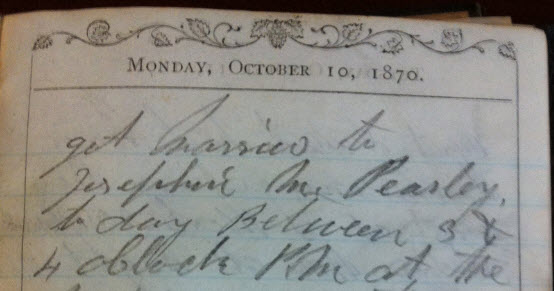 MONDAY, OCTOBER 10, 1870.
get married to
Josephine M. Peasley,
to day Between 3 &
4 oblock PM at the